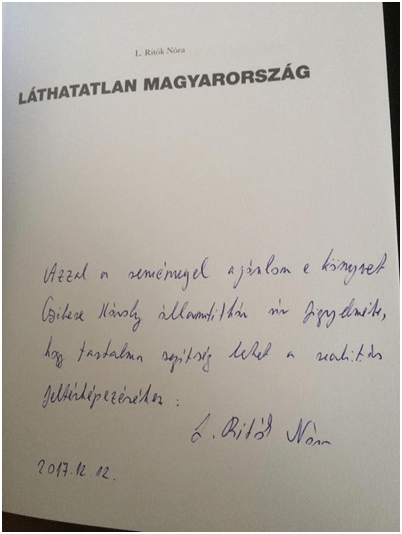 L. Ritók Nóra
LÁTHATATLAN MAGYARORSZÁG
Azzal a reménnyel ajánlom e könyvet
Czibere Károly államtitkár úr figyelmébe,
hogy tartalma segítség lehet a realitás
feltérképezéséhez:
L. Ritók Nóra
2017.12.12.